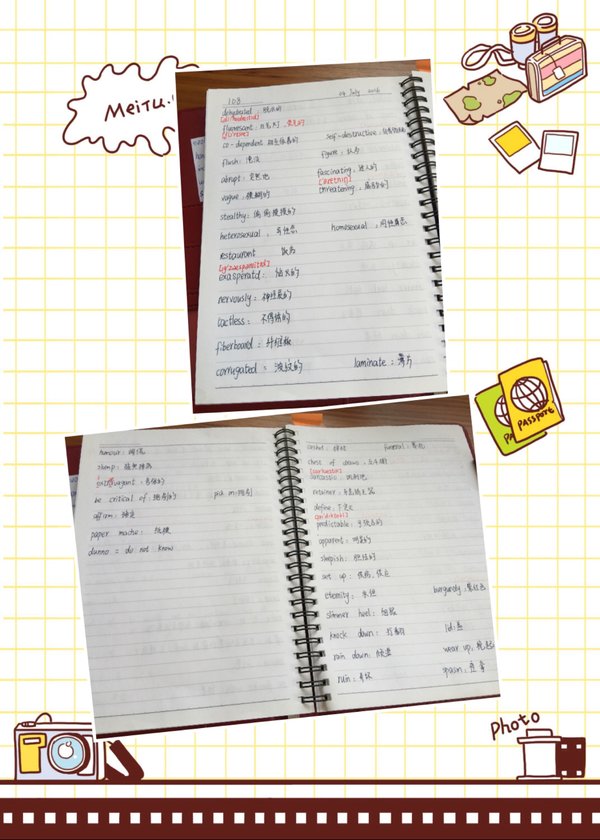 MEITU.
108
04 July 2016
dehydrated: 脱水的
fluorescent: 日光灯, 发光的
co-dependent 相互依赖的
self-destructive:
flush: 淹没
figure: 认为
abrupt: 突然地
fascinating: 迷人的
vague: 模糊的
threatening: 威胁的
stealthy: 偷偷摸摸的
heterosexual: 异性恋
homosexual: 同性恋
restaurant 饭店
exasperatd: 恼火的
nervously: 神经质的
tactless: 不得体的
fiberboard: 纤维板
corrugated = 波纹的
laminate: 薄片
humour: 幽默
shrimp:
extravagant: 奢侈的
be critical of: 挑剔的
pick on:
affirm: 确定
paper mache: 纸模
dunno = do not know
casket: 棺材
funeral: 葬礼
chest of draws: 五斗橱
sarcastic: 讽刺地
retainer: 牙齿矫正器
define: 下定义
predictable: 可预言的
apparent: 明显的
sheepish: 胆怯的
set up:
eternity: 永恒
burgundy: 紫红色
slimmer heel: 细跟
knock down: 打翻
lid: 盖
rain down:
wear up:
ruin: 弄坏
spasm: 痉挛
PASSPORT
Photo